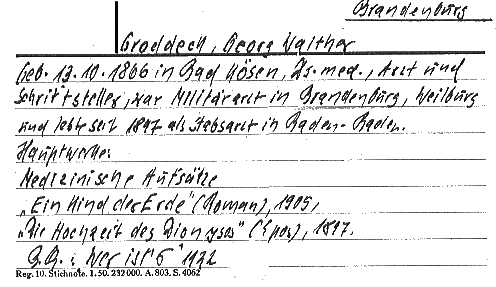 Brandenburg
Groddeck, Georg Walther
Geb. 13.10.1866 in Bad Kösen, Dr. med., Arzt und
Schriftsteller, war Militärarzt in Brandenburg, Weilburg
und lebte seit 1897 als Stabsarzt in Baden-Baden.
Hauptwerke:
Medizinische Aufsätze
„Ein Kind der Erde" (Roman), 1905,
„Die Hochzeit des Dionysos" (Epos), 1897.
Wer ist's 1922
Reg. 10. Stichnote. I. 50. 232000. A. 803. S. 4062